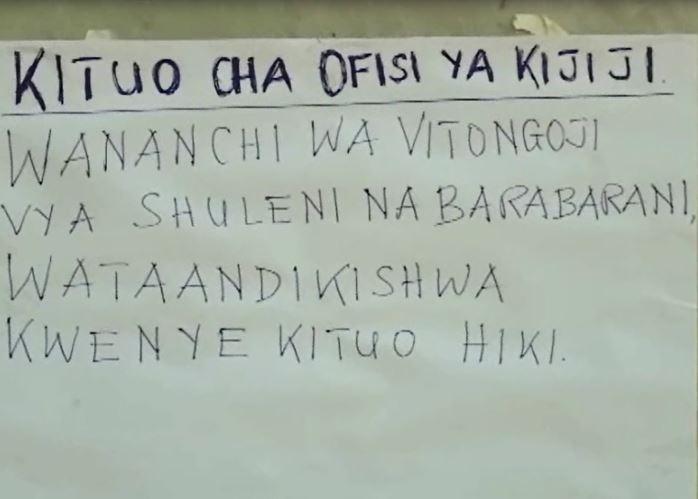 KITUO CHA OFISI YA KIJIJI.
WANANCHI WA VITONGOJI
VYA SHULENI NA BARABARANI,
WATAANDIKISHWA
KWENYE KITUO HIKI.